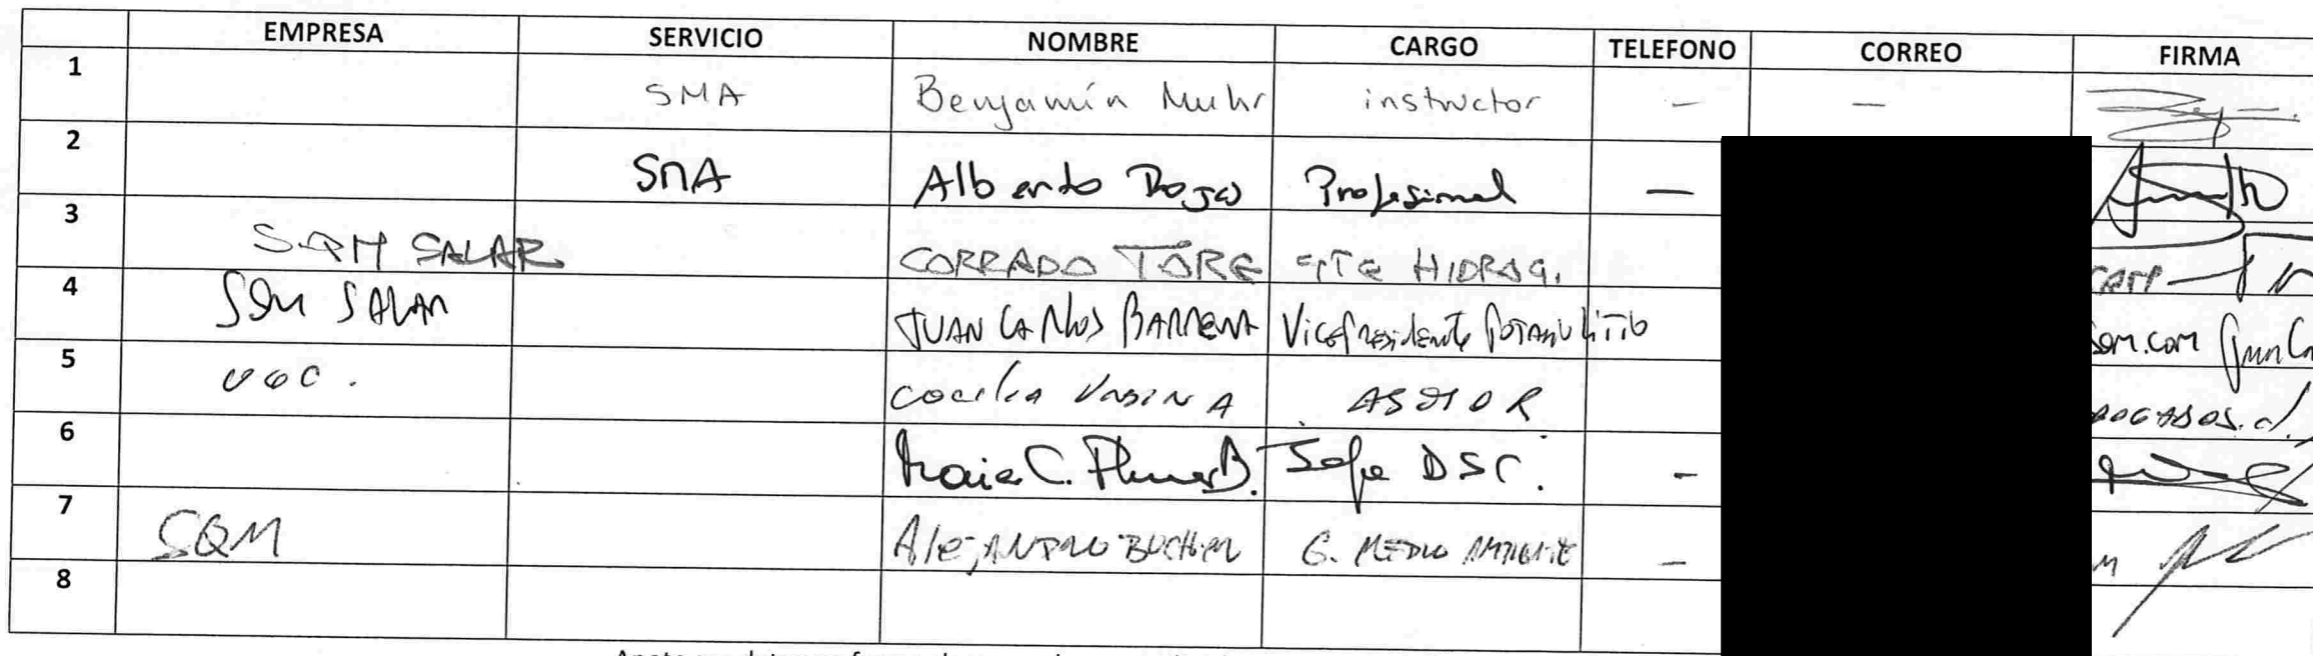 EMPRESA SERVICIO NOMBRE CARGO TELEFONO CORREO FIRMA
1 SMA Benjamín Muhr instructor – –
2 SMA Alberto Rojas Profesional –
3 SQM SALAR CORRADO TORE GTE HIDROG.
4 SQM SALAR JUAN CARLOS BARRERA Vicepresidente Potasio Litio
5 CECILIA URBINA ASESOR
6 Jefe DSC. –
7 SQM Alejandro Bucher G. MEDIO AMBIENTE –
8